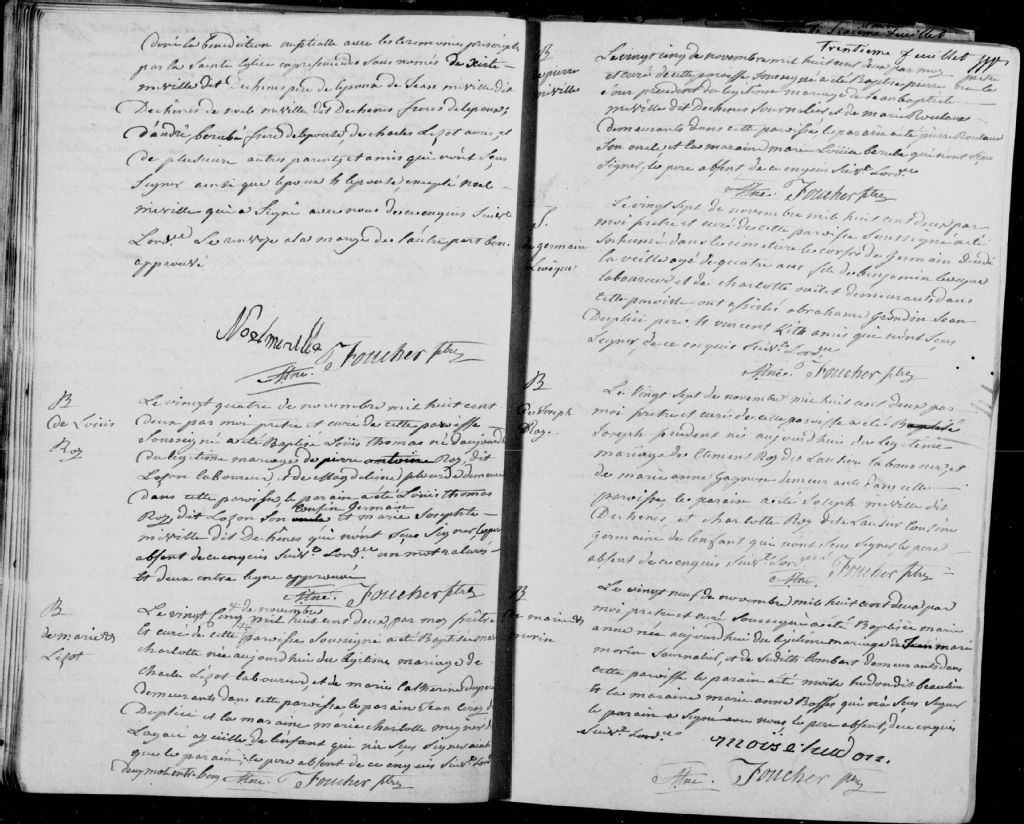 donné la benediction nuptialle avec les ceremonies prescrites
par la Sainte Eglise en presence des Sous només de
miville dit Dechênes pere de lepoux de Jean miville dit
Dechênes de noel miville dit Dechenes freres de lepoux;
D'andré berubé frere de lepouse, de charles Lizot amis, et
de plusieur autres parents et amis qui n'ont Sçus
Signer ainsi que lepoux & lepouse, excepté noel
miville qui a Signé avec nous de ce enquis Suivt
Lordce Le renvoye a la marge de l'autre part bon
approuvé
Noel miville
Attne. Foucher ptre
B
de Loüis
Roy
Le vingt quatre de novembre mil huit cent
deux par moi prêtre et curé de cette paroisse
Soussigné a eté Baptisé Loüis Thomas né d'aujourd'hui
du legitime mariage de pierre antoine Roy dit
Lozon laboureur, et de Magdeleine demeurants
dans cette paroisse, le parain a eté Louis Thomas
cousin Germain
Roy dit Lozon Son oncle et marie Josephte
miville dit Dechênes qui n'ont Sçus Signer, le pere
absent de ce enquis Suivt Lordce un mot raturé
et deux entre ligne approuvé
Attne. Foucher ptre
B
de marie ch
Lizot
4e de novembre
Le vingt Cinq mil huit cent deux, par moy prêtre
et curé de cette paroisse Soussigné a eté Baptisé marie
charlotte née aujourd'hui du legitime mariage de
Charle Lizot laboureur, et de marie Catherine
demeurants dans cette paroisse le parain Jean
Duplicé et la maraine marie charlotte
Lagau ayeulle de l'enfant qui n'a Sçus Signer ainsi
que le parain; le pere absent de ce enquis Suivt Lordce
deux mots entre lign bons Attne. Foucher ptre
Trentieme feuillet
B
de pierre
miville
Le vingt cinq de novembre mil huit cent deux par moy prêtre
et curé de cette paroisse Soussigné a eté Baptisé pierre né la
Jour precedent du legitime mariage de Jean baptiste
miville dit Dechenes Journalier, et de marie Rouleau
demeurants dans cette paroisse, le parain a eté pierre Rouleau
Son oncle et la maraine marie Loüise berubé qui n'ont Sçus
Signer, le pere absent de ce enquis Suivt Lordce
Attne. Foucher ptre
S.
de germain
Levêque
Le vingt Sept de novembre mil huit cent deux par
moi prêtre et curé de cette paroisse Soussigné a eté
Inhumé dans le cimetiere le corps de Germain décédé
la veille agé de quatre ans fils de benjamin levêque
laboureur, et de charlotte ouellet demeurants dans
cette paroisse ont assistés abrahame Grondin Jean
Duplicé pere & vincent Litk amis qui n'ont Sçus
Signer, de ce enquis Suivt Lordce
Attne. Foucher ptre
B
de Joseph
Roy.
Le vingt Sept de novembre mil huit cent deux par
moi prêtre et curé de cette paroisse a eté Baptisé
Joseph prudent né aujourd'hui du legitime
mariage de Clement Roy dit Lausier laboureur, et
de marie anne Gagnon demeurants dans cette
paroisse, le parain a eté Joseph miville dit
Dechênes, et charlotte Roy dite Lausier Cousine
germaine de l'enfant qui n'ont Sçus Signer le pere
absent de ce enquis Suivt Lordce
Attne. Foucher ptre
B
de marie a
morin
Le vingt neuf de novembre mil huit cent deux par
moi prêtre et curé Soussigné a eté Baptisée marie
anne née aujourd'hui du legitime mariage de Jean marie
morin Journalier, et de Judith Lombart demeurants dans
cette paroisse le parain a eté moise hudon dit beaulieu
et la maraine marie anne Bosses qui n'a Sçus Signer
le parain a Signé avec nous le pere absent, de ce enquis
Suivt Lordce
moise hudon.
Attne. Foucher ptre